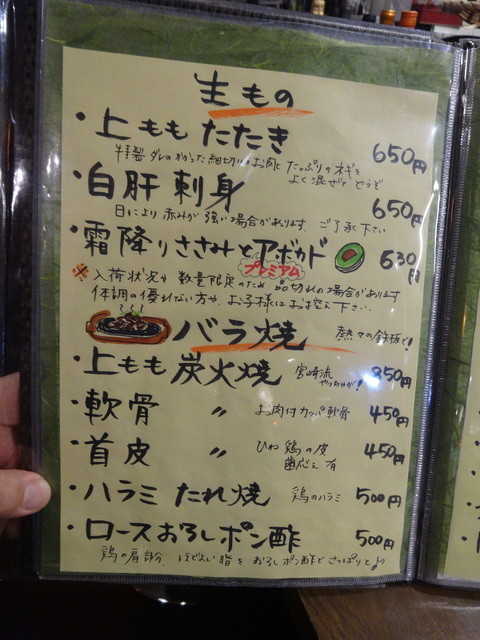 生もの
・上もも たたき 650円
特製ダレのかかった細切りのお肉に たっぷりのネギを
よく混ぜて どうぞ
・白肝 刺身 650円
日により 赤みが 強い場合があります。ご了承下さい
・霜降りささみとアボカド 630円
プレミアム
※入荷状況や 数量限定のため 品切れの場合があります
体調の優れない方や、お子様にはお控え下さい。
バラ焼 熱々の鉄板で!
・上もも 炭火焼 宮崎流 850円
・軟骨 〃 お肉付カッパ軟骨 450円
・首皮 〃 ひね鶏の皮 450円
歯応え 有
・ハラミ たれ焼 鶏のハラミ 500円
・ロースおろしポン酢 500円
鶏の肩部分 ほどよい脂を おろしポン酢でさっぱりと♪